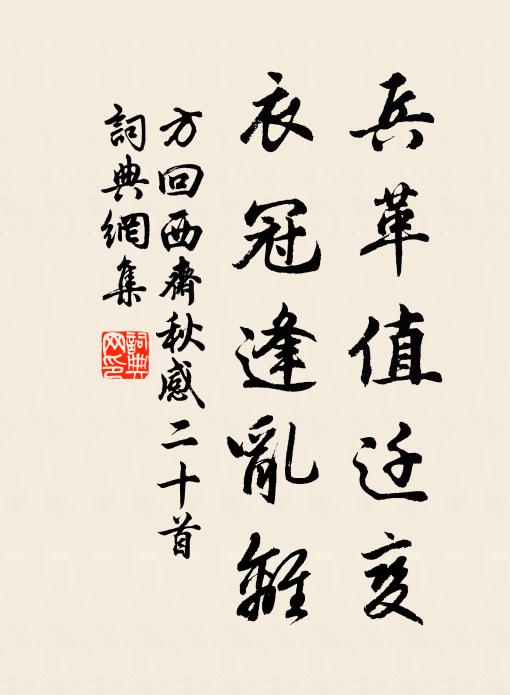 兵革值迁变
衣冠逢亂離
方回西齋秋感二十首
詞典網集
詞典网印